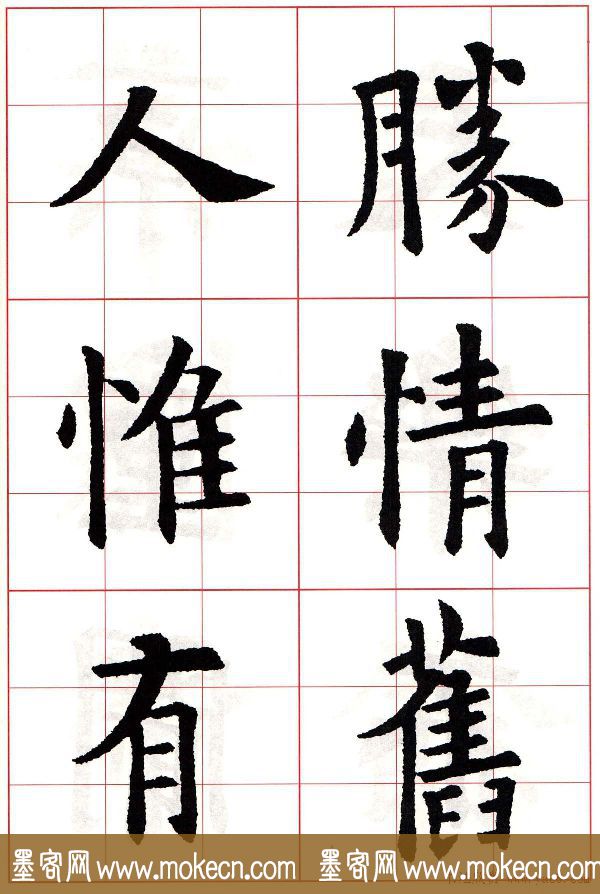 勝情舊
人惟有
墨客网 www.mokecn.com 墨客网 www.mokecn.com